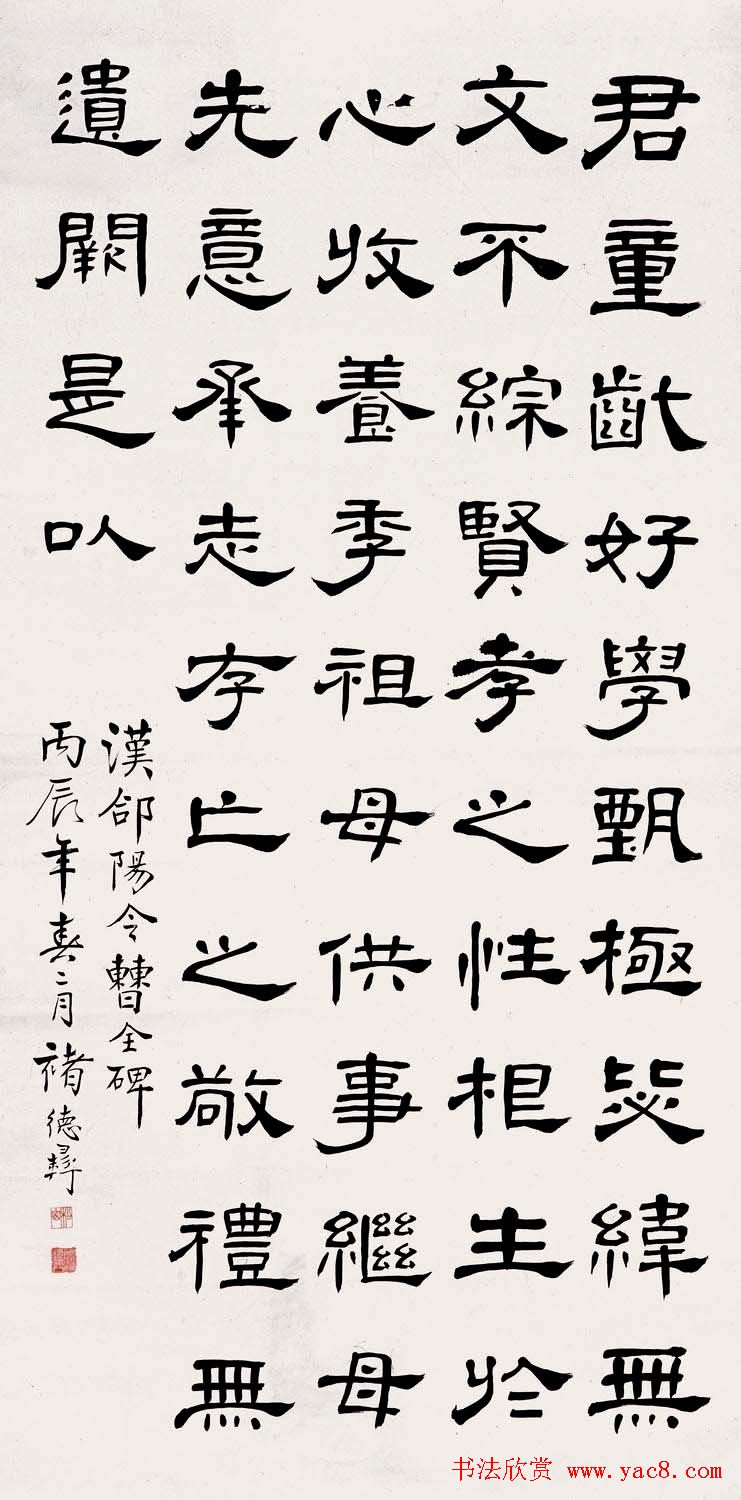 君童齔好學甄極毖緯無
文不綜賢孝之性根生於
心收養季祖母供事繼母
先意承志存亡之敬禮無
遺闕是以
漢郃陽令曹全碑
丙辰年春二月褚德彝
书法欣赏 www.yac8.com